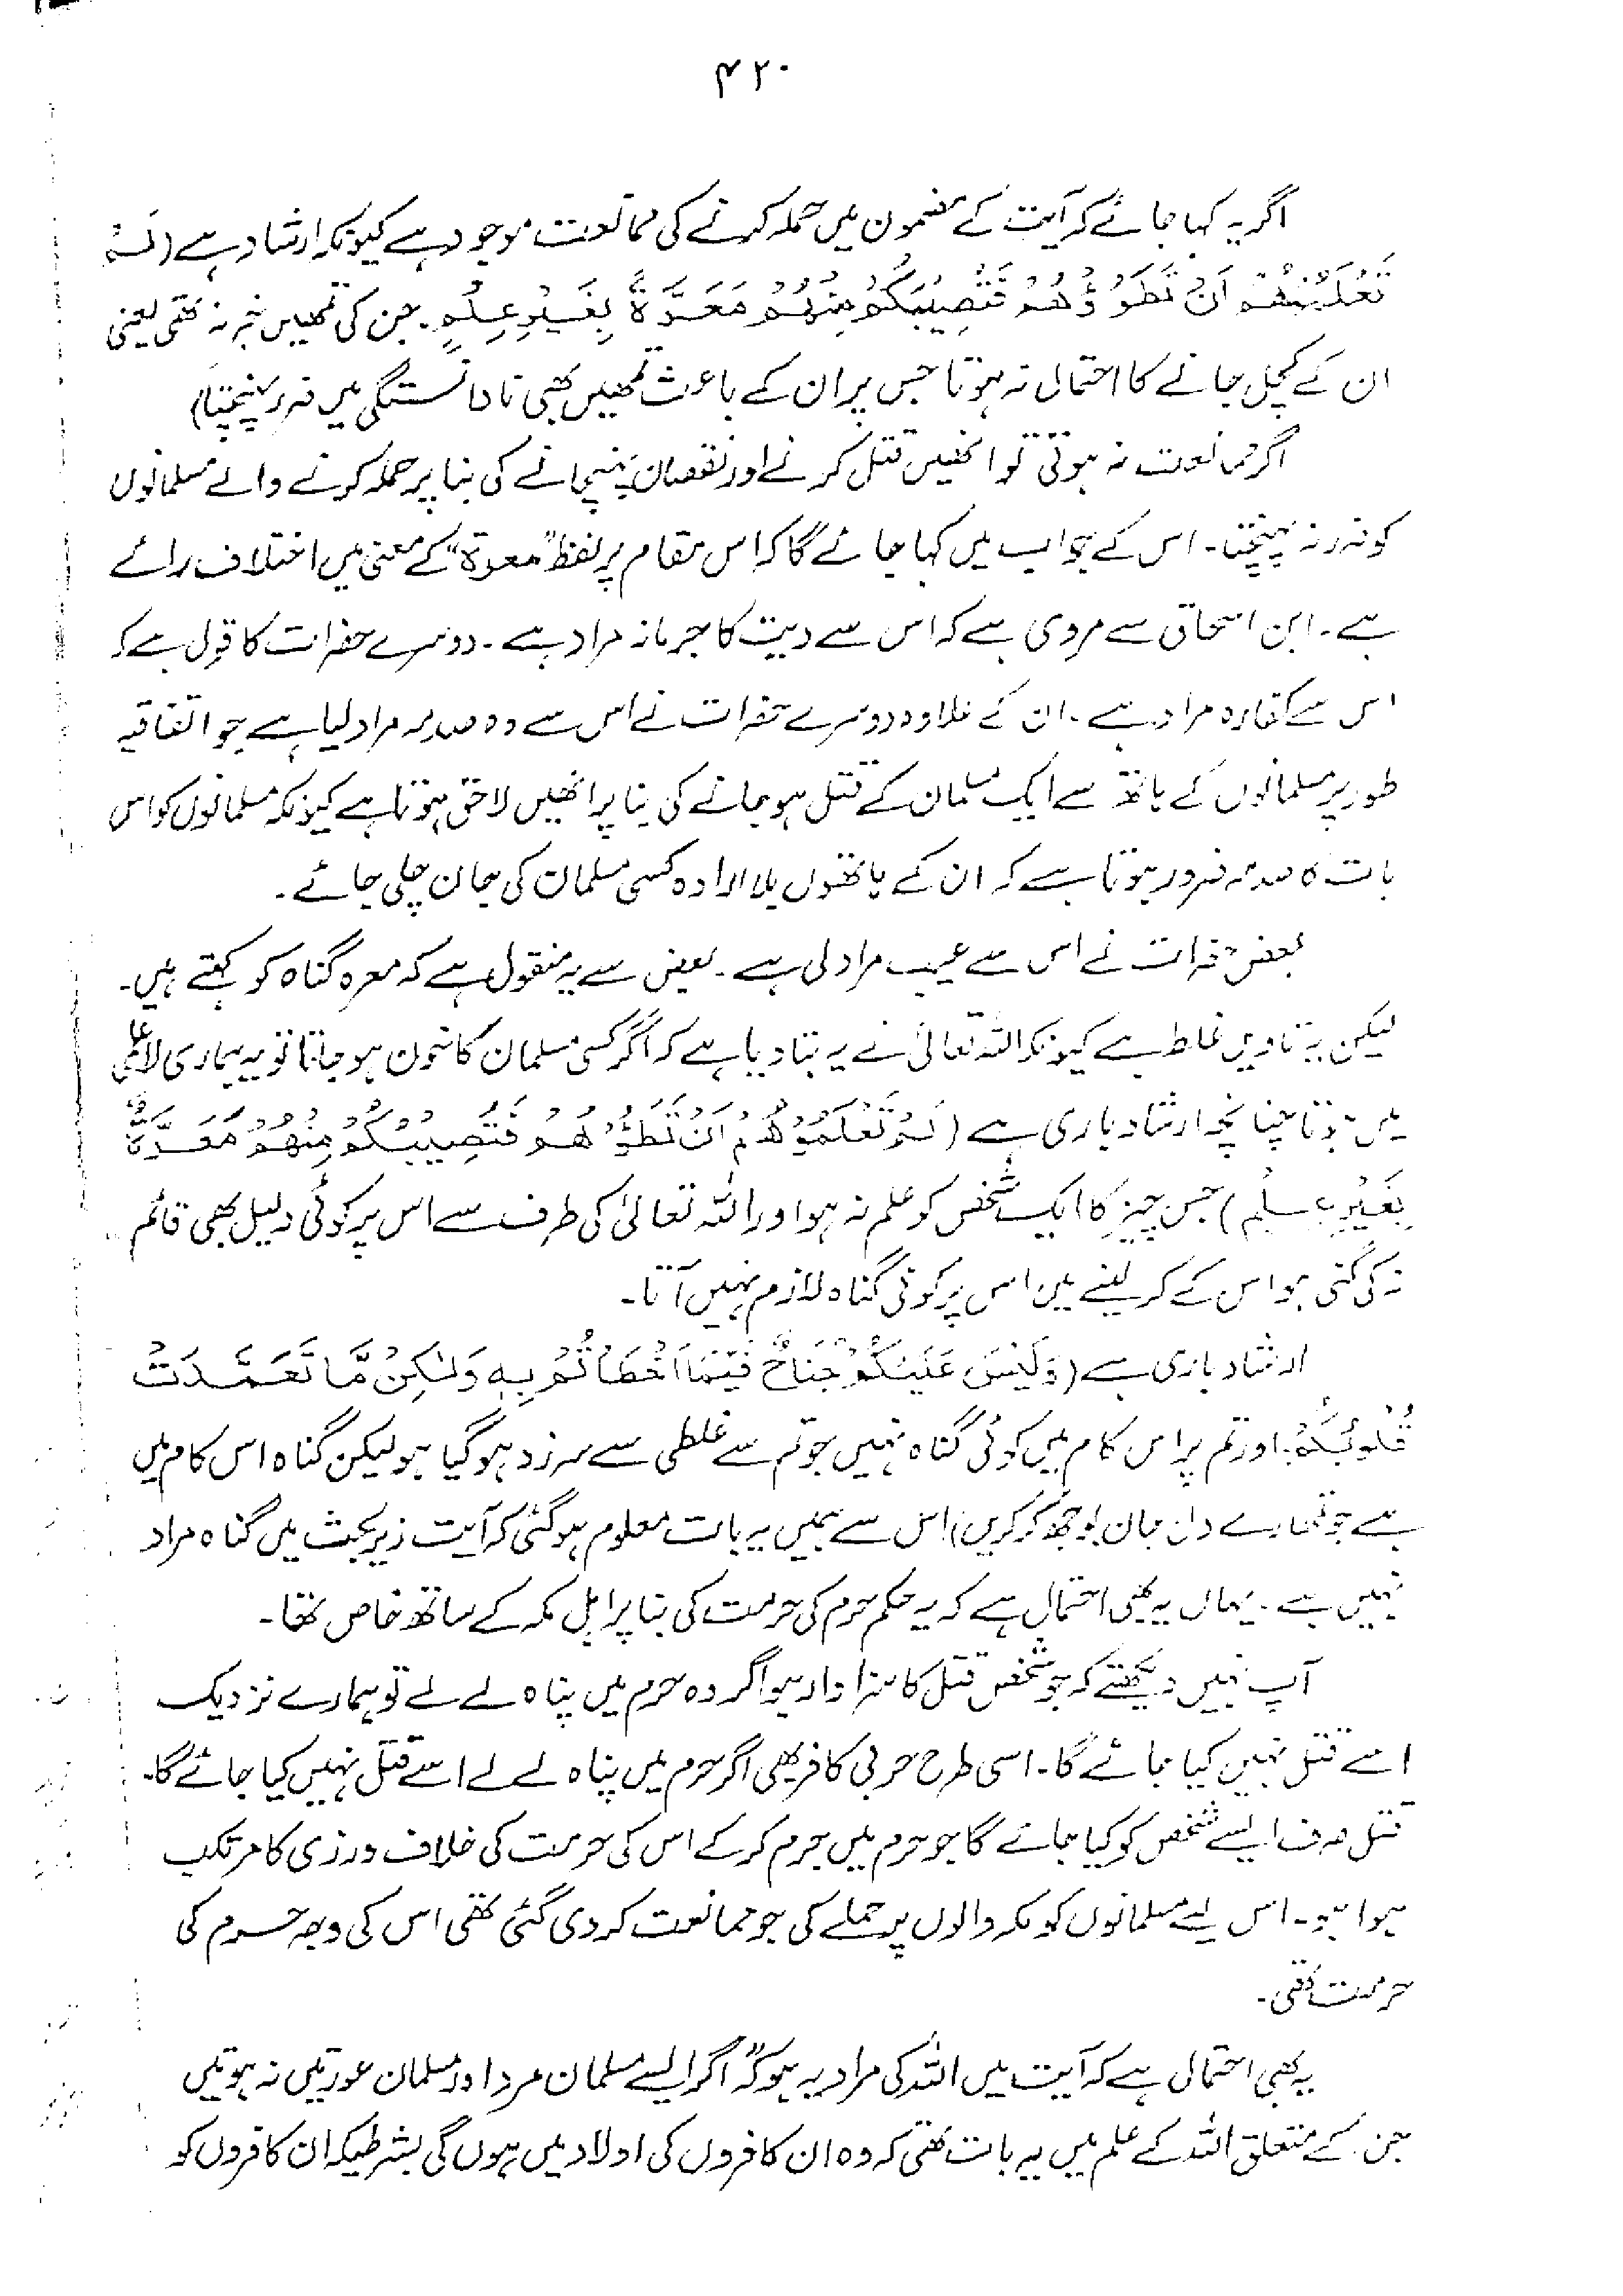 ۴۲۰
اگر یہ کہا جائے کہ آیت کے مضمون میں حملہ کرنے کی ممانعت موجود ہے کیونکہ ارشاد ہے (لَمْ
تَعْلَمُوْهُمْ اَنْ تَطَـُٔوْهُمْ فَتُصِيْبَكُمْ مِنْهُمْ مَعَرَّةٌ بِغَيْرِ عِلْمٍ۔ جن کی تمھیں خبر نہ تھی یعنی
ان کے کچل جانے کا احتمال نہ ہوتا جس پر ان کے باعث تمھیں بھی نادانستگی میں ضرر پہنچتا)
اگر ممانعت نہ ہوتی تو انھیں قتل کرنے اور نقصان پہنچانے کی بنا پر حملہ کرنے والے مسلمانوں
کو ضرر نہ پہنچتا۔ اس کے جواب میں کہا جائے گا کہ اس مقام پر لفظ "معرۃ" کے معنی میں اختلاف رائے
ہے۔ ابن اسحاق سے مروی ہے کہ اس سے دیت کا جرمانہ مراد ہے۔ دوسرے حضرات کا قول ہے کہ
اس سے کفارہ مراد ہے۔ ان کے علاوہ دوسرے حضرات نے اس سے وہ صدمہ مراد لیا ہے جو اتفاقیہ
طور پر مسلمانوں کے ہاتھ سے ایک مسلمان کے قتل ہو جانے کی بنا پر انھیں لاحق ہوتا ہے کیونکہ مسلمانوں کو اس
بات کا صدمہ ضرور ہوتا ہے کہ ان کے ہاتھوں بلا ارادہ کسی مسلمان کی جان چلی جائے۔
بعض حضرات نے اس سے عیب مراد لی ہے۔ بعض سے یہ منقول ہے کہ معرہ گناہ کو کہتے ہیں۔
لیکن یہ تاویل غلط ہے کیونکہ اللہ تعالیٰ نے یہ بتا دیا ہے کہ اگر کسی مسلمان کا خون ہو جاتا تو یہ ہماری لاعلمی
میں ہوتا چنانچہ ارشاد باری ہے (لَمْ تَعْلَمُوْهُمْ اَنْ تَطَـُٔوْهُمْ فَتُصِيْبَكُمْ مِنْهُمْ مَعَرَّةٌ
بِغَيْرِ عِلْمٍ) جس چیز کا ایک شخص کو علم نہ ہو اور اللہ تعالیٰ کی طرف سے اس پر کوئی دلیل بھی قائم
نہ کی گئی ہو اس کے کر لینے میں اس پر کوئی گناہ لازم نہیں آتا۔
ارشاد باری ہے (وَلَيْسَ عَلَيْكُمْ جُنَاحٌ فِيْمَا اَخْطَأْتُمْ بِهٖ وَلٰكِنْ مَّا تَعَمَّدَتْ
قُلُوْبُكُمْ۔ اور تم پر اس کام میں کوئی گناہ نہیں جو تم سے غلطی سے سرزد ہو گیا ہو لیکن گناہ اس کام میں
ہے جو تمھارے دل جان بوجھ کر کریں) اس سے ہمیں یہ بات معلوم ہو گئی کہ آیت زیر بحث میں گناہ مراد
نہیں ہے۔ یہاں یہ بھی احتمال ہے کہ یہ حکم حرم کی حرمت کی بنا پر اہل مکہ کے ساتھ خاص تھا۔
آپ نہیں دیکھتے کہ جو شخص قتل کا سزاوار ہو اگر وہ حرم میں پناہ لے لے تو ہمارے نزدیک
اسے قتل نہیں کیا جائے گا۔ اسی طرح حربی کافر بھی اگر حرم میں پناہ لے لے اسے قتل نہیں کیا جائے گا۔
قتل صرف ایسے شخص کو کیا جائے گا جو حرم میں جرم کر کے اس کی حرمت کی خلاف ورزی کا مرتکب
ہوا ہو۔ اس لیے مسلمانوں کو مکہ والوں پر حملے کی جو ممانعت کر دی گئی تھی اس کی وجہ حرم کی
حرمت تھی۔
یہ بھی احتمال ہے کہ آیت میں اللہ کی مراد یہ ہو کہ "اگر ایسے مسلمان مرد اور مسلمان عورتیں نہ ہوتیں
جن کے متعلق اللہ کے علم میں یہ بات تھی کہ وہ ان کافروں کی اولاد میں ہوں گی بشرطیکہ ان کافروں کو